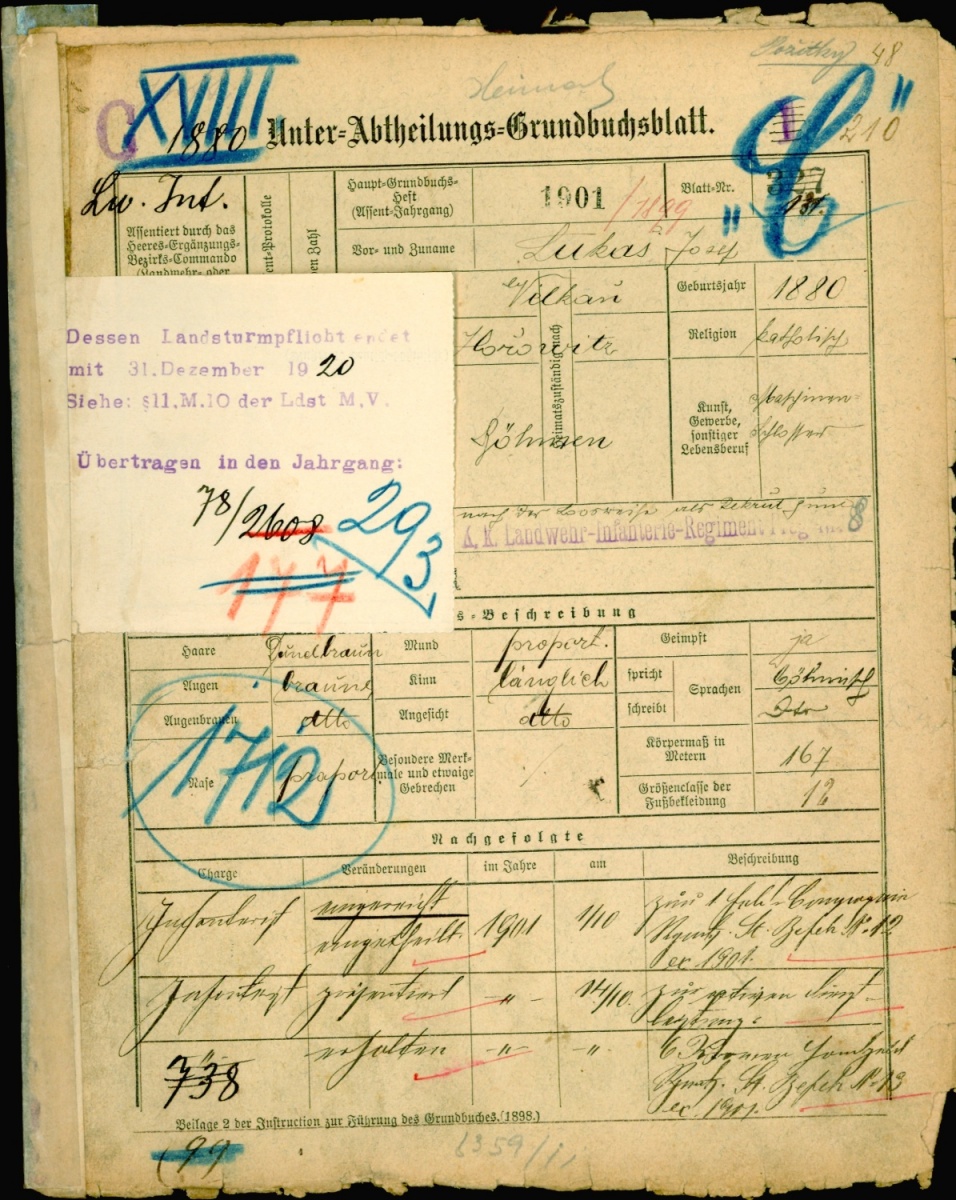 48
Heimat
C XVIII
1880
Unter=Abtheilungs=Grundbuchsblatt.
1
210
"L"
Lw. Inf.
Haupt=Grundbuchs=
Heft
(Assent=Jahrgang)
1901 / 1899
Blatt=Nr.
327
131.
Assentiert durch das
Heeres=Ergänzungs=
Bezirks=Commando
(Landwehr= oder
Vor= und Zuname
Lukas Josef
Velkau
Geburtsjahr
1880
Hořowitz
Heimatszuständig nach
Religion
katholisch
Böhmen
Kunst,
Gewerbe,
sonstiger
Lebensberuf
Maschinen-
schlosser
Dessen Landsturmpflicht endet
mit 31.Dezember 19 20
Siehe: §11,M.10 der Ldst M.V.
Übertragen in den Jahrgang:
78/2608
293
177
nach der Losreihe als Rekrut zum
K. k. Landwehr-Infanterie-Regiment
8
s=Beschreibung
Haare
Dunelbraun
Mund
proport.
Geimpft
ja
Augen
braune
Kinn
länglich
spricht
schreibt
Sprachen
böhmisch
Dto
Augenbrauen
dtto
Angesicht
dtto
Nase
proport
Besondere Merk=
male und etwaige
Gebrechen
/
Körpermaß in
Metern
167
Größenclasse der
Fußbekleidung
12
1712
Nachgefolgte
Charge
Veränderungen
im Jahre
am
Beschreibung
Infanterist
eingereiht
eingetheilt
1901
1/10
zur 1 Feld-Compagnie
Rgmts. St. Befeh No 12
ex 1901.
Infanterist
präsentiert
-"-
14/10.
zur aktiven Dienst-
leistung.
erhalten
-"-
"
6 Kronen
Rgmts. St. Befeh No 13
ex 1901.
738
Beilage 2 der Instruction zur Führung des Grundbuches. (1898.)
(99)
6359/1,